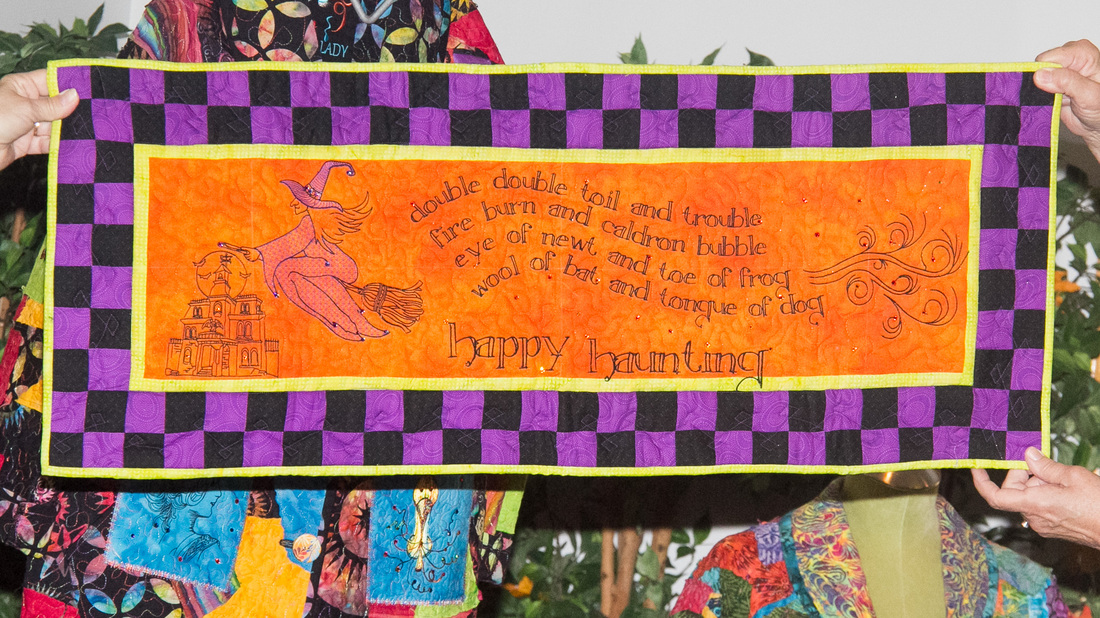 LADY
double double toil and trouble
fire burn and caldron bubble
eye of newt and toe of frog
wool of bat and tongue of dog
happy haunting